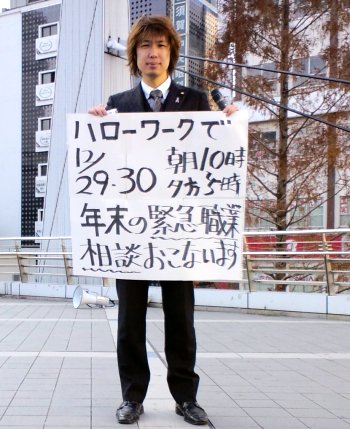 ハローワークで
12/29・30 朝10時
夕方5時
年末の緊急職業
相談おこないます